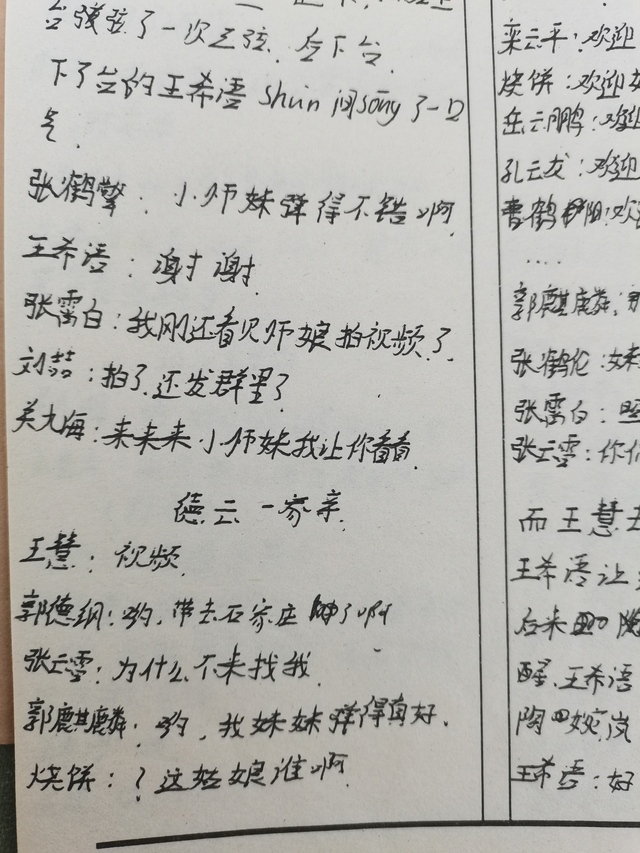 台弹弦了一次三弦,后下台.
下了台的王希语shūn间sōng了一口
气.
张鹤擎:小师妹弹得不错啊
王希语:谢谢
张霄白:我刚还看见师娘拍视频了.
刘喆:拍了,还发群里了
关九海:来来来,小师妹我让你看看.
德云一家亲.
王慧:视频
郭德纲:哟,带去石家庄了啊
张云雷:为什么不来找我.
郭麒麟:哟,我妹妹弹得真好.
烧饼:?这姑娘谁啊
栾云平:欢迎
烧饼:欢迎
岳云鹏:欢迎
孔云龙:欢迎
曹鹤阳:欢
....
郭麒麟:
张鹤伦:妹
张霄白:
张云雷:你
而王慧
王希语让
后来
醒.王希语
陶
王希语:好